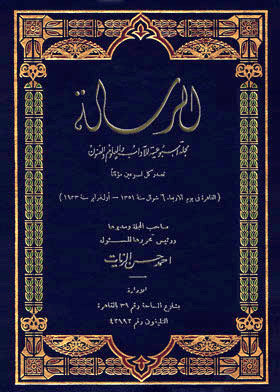 الرسالة
مجلة أسبوعية للآداب والعلوم والفنون
تصدر كل أسبوعين مؤقتاً
(القاهرة في يوم الأربعاء ٦ شوال سنة ١٣٥١ – أول فبراير سنة ١٩٣٣)
صاحب المجلة ومديرها
ورئيس تحريرها المسئول
احمد حسن الزيات
الادارة
بشارع الساحة رقم ٣٩ بالقاهرة
التليفون رقم ٤٢٩٩٢